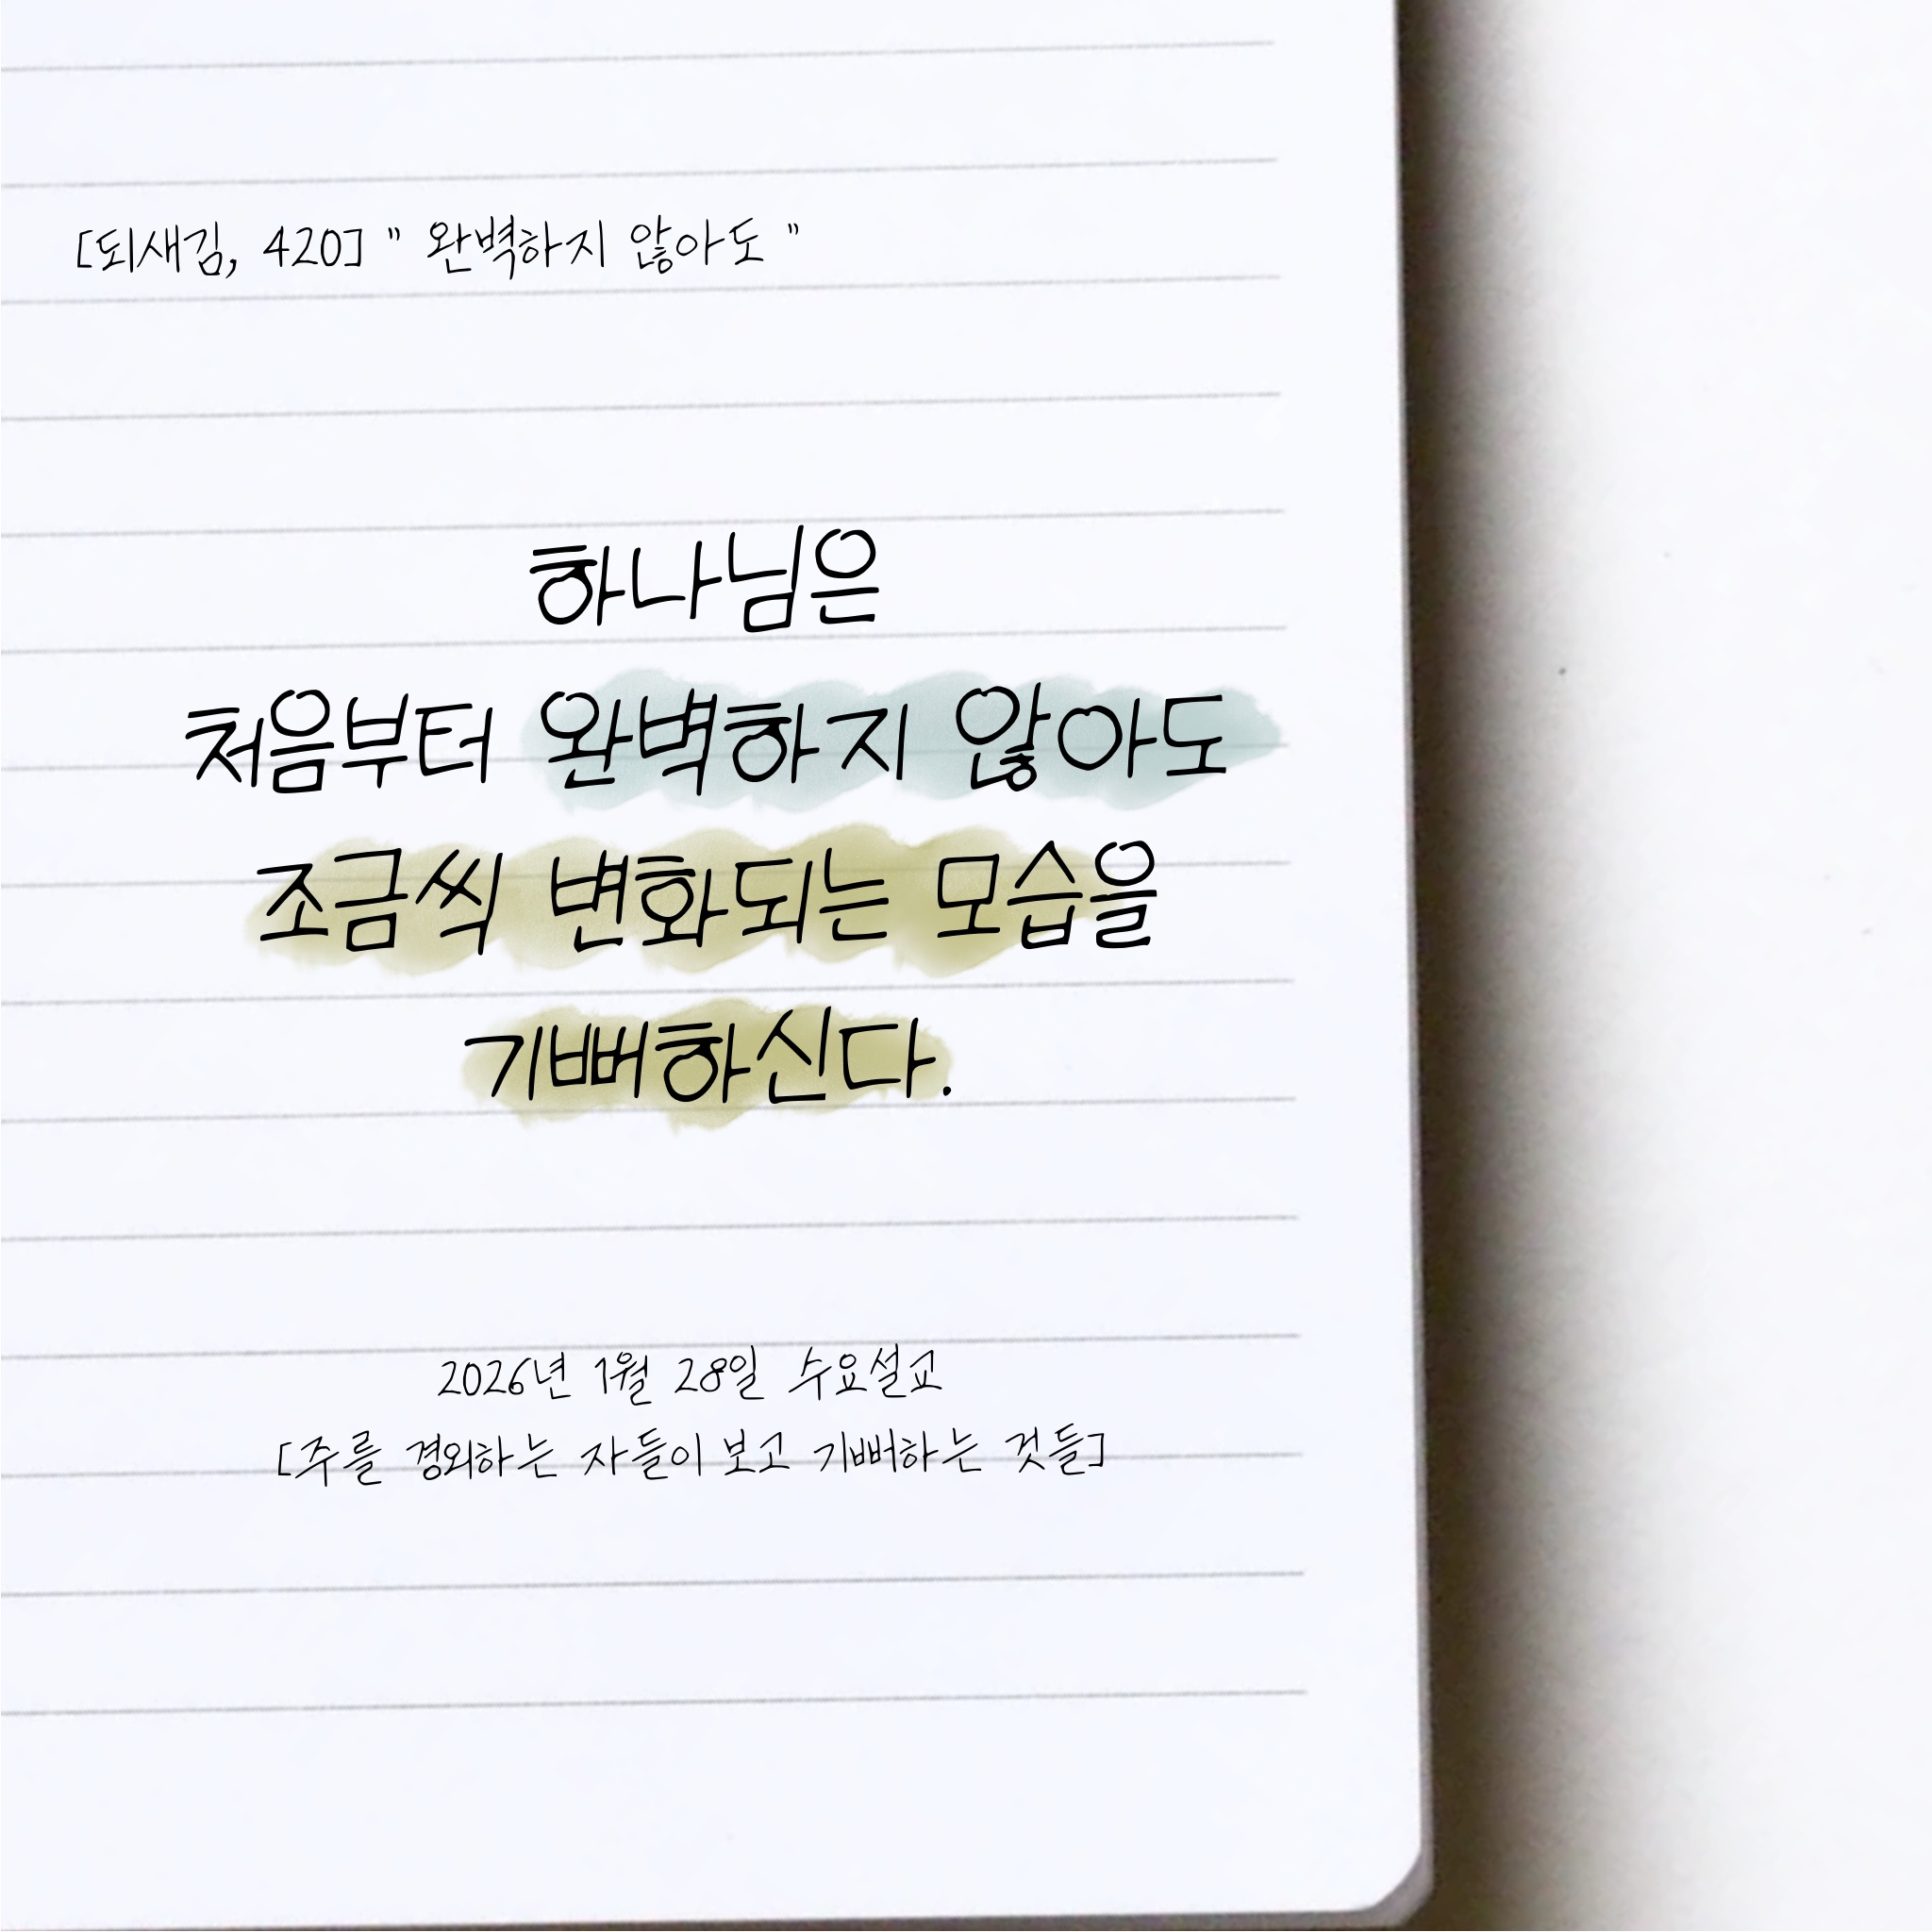 [되새김, 420] " 완벽하지 않아도 "
하나님은
처음부터 완벽하지 않아도
조금씩 변화되는 모습을
기뻐하신다.
2026년 1월 28일 수요설교
[주를 경외하는 자들이 보고 기뻐하는 것들]